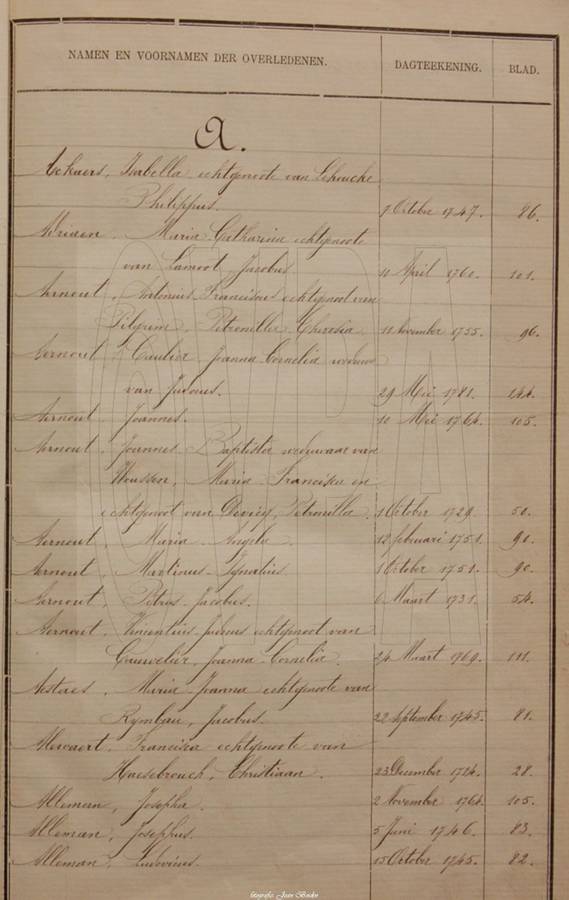 NAMEN EN VOORNAMEN DER OVERLEDENEN. DAGTEEKENING. BLAD.
A.
Isabella echtgenoote van
Philippus. 7 October 1747. 86.
Adriaen. Maria-Catharina echtgenoote
van Lamoot, Jacobus 10 April 1760. 101.
Aernout, Antonius-Franciscus echtgenoot van
Pilgrim, Petronilla-Theresia. 11 November 1755. 96.
Aernout, Caulier, Joanna-Cornelia weduwe
van Judocus. 29 Mei 1781. 144.
Aernout, Joannes. 10 Mei 1764. 105.
Aernout, Joannes-Baptista weduwaar van
Maria-Francisca en
echtgenoot van Petronella. 1 October 1729. 50.
Aernout, Maria-Angela. 12 februari 1751. 90.
Aernout, Martinus-Ignatius. 1 October 1751. 90.
Aernout, Petrus-Jacobus. 6 Maart 1731. 54.
Aernout, Vincentius-Judocus echtgenoot van
Cauwelier, Joanna-Cornelia. 24 Maart 1769. 111.
Maria-Joanna echtgenoote van
Jacobus. 22 september 1745. 81.
Francisca echtgenoote van
Haesebrouck, Christiaan. 23 December 1724. 28.
Alleman, Josepha. 2 November 1764. 105.
Alleman, Josephus. 5 Juni 1746. 83.
Alleman, Ludovicus. 15 October 1745. 82.